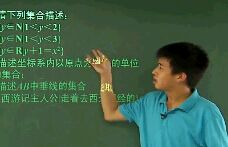 下列集合描述:
y∈N|1<y<2}
y∈N|1<y<3}
y∈R|y+1=x²}
描述坐标系内以原点为 的单位
的集合;
描述AB中垂线的集合
西游记主人公走着去西天 经的